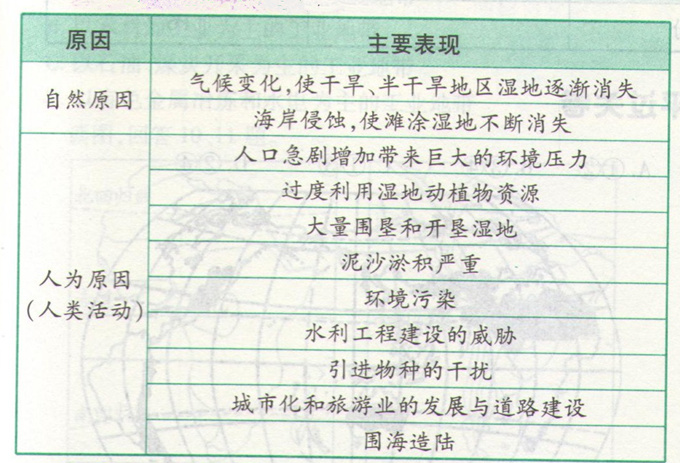 原因
主要表现
自然原因
气候变化,使干旱、半干旱地区湿地逐渐消失
海岸侵蚀,使滩涂湿地不断消失
人为原因
(人类活动)
人口急剧增加带来巨大的环境压力
过度利用湿地动植物资源
大量围垦和开垦湿地
泥沙淤积严重
环境污染
水利工程建设的威胁
引进物种的干扰
城市化和旅游业的发展与道路建设
围海造陆